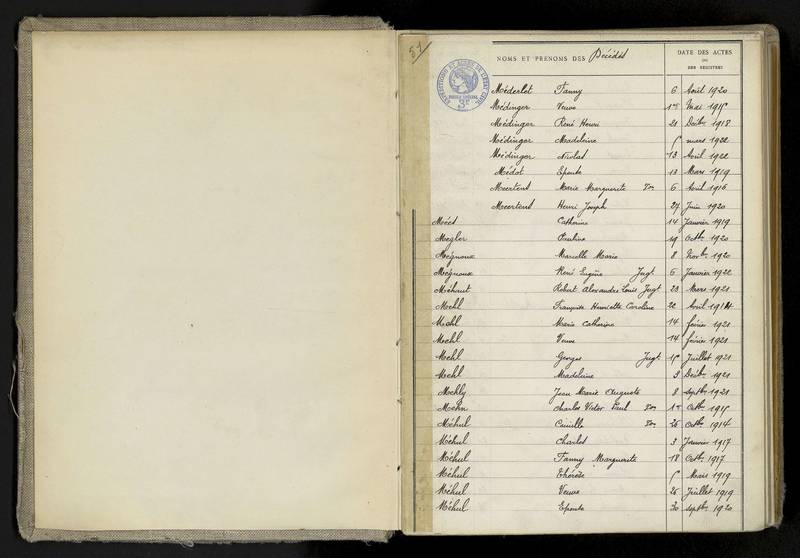 51
NOMS ET PRÉNOMS DES Décédés
DATE DES ACTES
OU
DES REGISTRES
EXPÉDITIONS ET ACTES DE L'ÉTAT CIVIL
Méderlet Fanny 6 Août 1920
Médinger Veuve 1er Mai 1915
Médinger René Henri 21 Décbre 1918
Médinger Madeleine 5 mars 1922
Médinger Nicolas 13 Avril 1922
Médot Epouse 13 Mars 1919
Meertens Marie Marguerite Von 6 Avril 1916
Meertens Henri Joseph 27 Juin 1920
Catherine 14 Janvier 1919
Megler Pauline 19 Octbre 1920
Mégnoux Marcelle Marie 8 Novbre 1920
Mégnoux René Eugène Jugt 6 Janvier 1922
Méhaut Robert Alexandre Louis Jugt 23 Mars 1921
Mehl Françoise Henriette Caroline 22 Avril 1914
Mehl Marie Catherine 14 février 1921
Mehl Veuve 14 février 1921
Mehl Georges Jugt 15 Juillet 1921
Mehl Madeleine 3 Décbre 1921
Mehly Jean Marie Auguste 8 septbre 1921
Mehn Charles Victor Paul 1er Octbre 1915
Méhul Camille 26 Octbre 1914
Méhul Charles 3 Janvier 1917
Méhul Fanny Marguerite 18 Octbre 1917
Méhul Thérèse 5 Mars 1919
Méhul Veuve 26 Juillet 1919
Méhul Epouse 30 septbre 1920